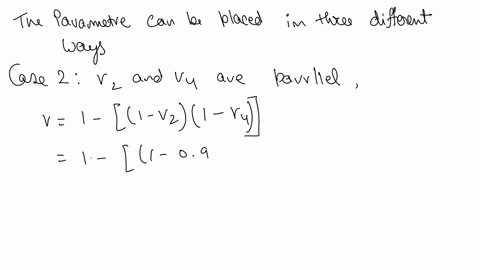 The Parametre can be placed in three different
ways
Case 2: r₂ and r₄ are parrllel,
r = 1 - [(1-r₂)(1-r₄)]
= 1 - [(1-0.9